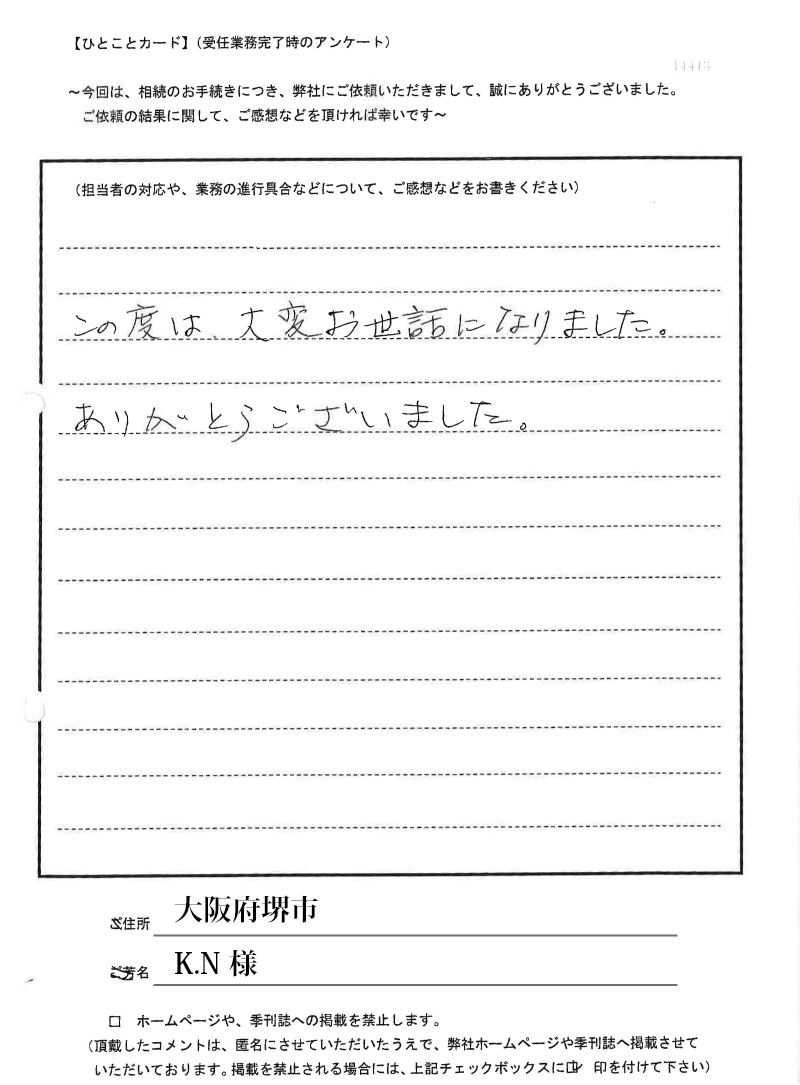 【ひとことカード】（受任業務完了時のアンケート）
14413
～今回は、相続のお手続きにつき、弊社にご依頼いただきまして、誠にありがとうございました。
ご依頼の結果に関して、ご感想などを頂ければ幸いです～
（担当者の対応や、業務の進行具合などについて、ご感想などをお書きください）
この度は、大変お世話になりました。
ありがとうございました。
ご住所 大阪府堺市
ご芳名 K.N 様
□ ホームページや、季刊誌への掲載を禁止します。
（頂戴したコメントは、匿名にさせていただいたうえで、弊社ホームページや季刊誌へ掲載させて
いただいております。掲載を禁止される場合には、上記チェックボックスに☑ 印を付けて下さい）